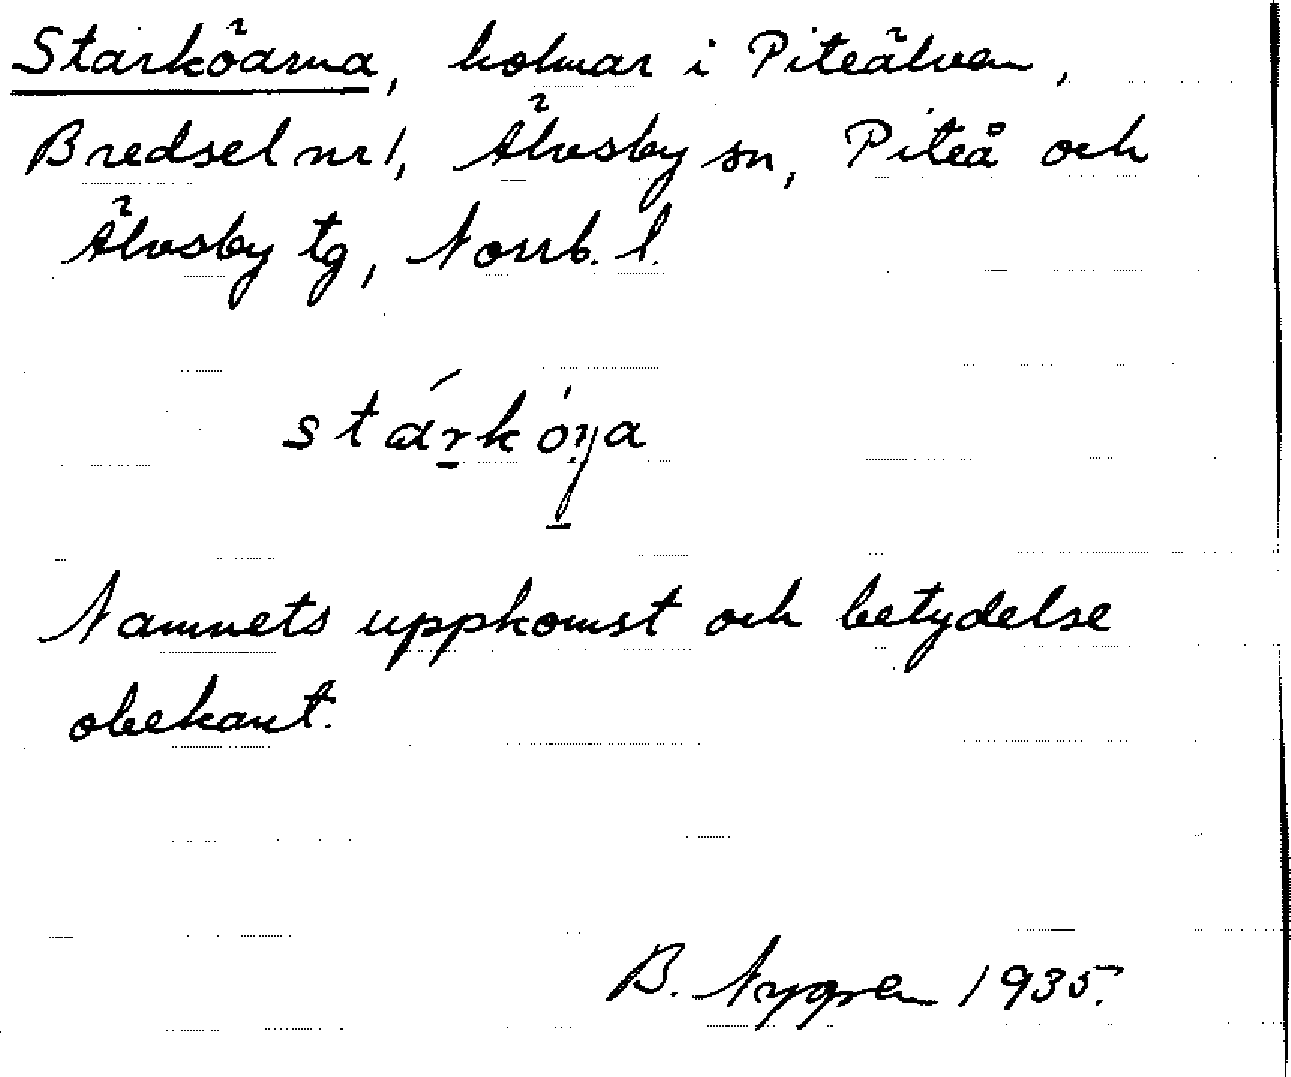 Starköarna, holmar i Piteälven,
Bredsel nr 1, Älvsby sn, Piteå och
Älvsby tg, Norrb. l.
Namnets uppkomst och betydelse
obekant.
B. Nygren 1935.